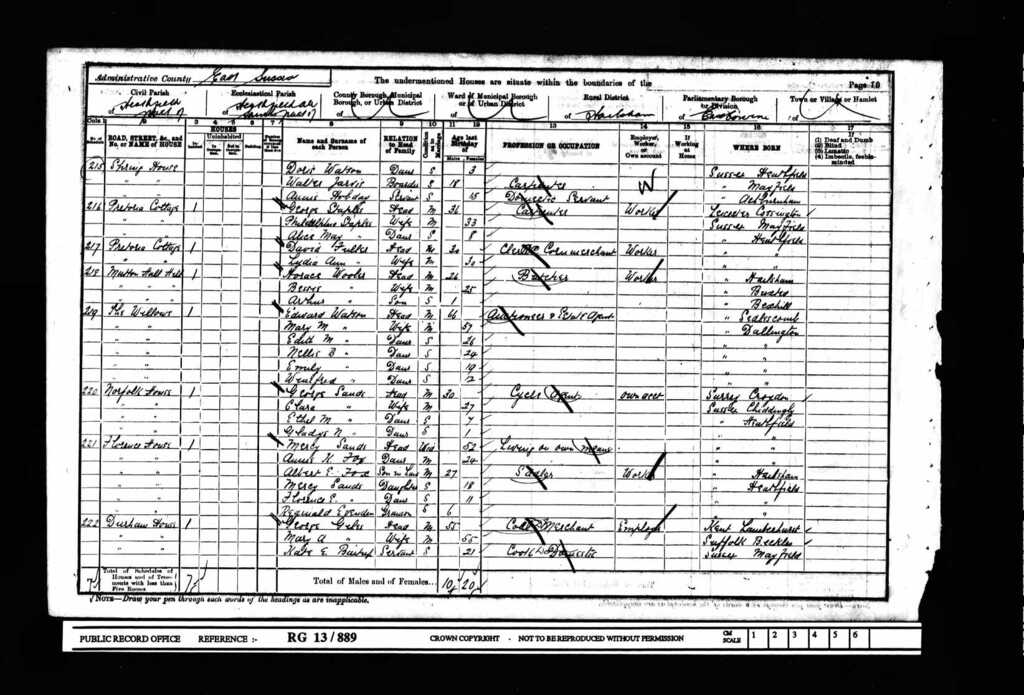 Administrative County East Sussex The undermentioned Houses are situate within the boundaries of the Page 10
Civil Parish Ecclesiastical Parish County Borough, Municipal Borough, or Urban District Ward of Municipal Borough or of Urban District Rural District Parliamentary Borough or Division Town or Village or Hamlet
of of of Hailsham of of
Cols. 1 2 3 4 5 6 7 8 9 10 11 12 13 14 15 16 17
ROAD, STREET, &c., and No. or NAME of HOUSE HOUSES Uninhabited Name and Surname of each Person RELATION to Head of Family Age last Birthday of Males Females PROFESSION OR OCCUPATION Employer, Worker, or Own account If Working at Home WHERE BORN (1) Deaf and Dumb (2) Blind (3) Lunatic (4) Imbecile, feeble-minded
215 Spring House Doris Watson Daur S 3 Sussex Heathfield
" " Walter Jarvis Boarder S 18 Carpenter W " Mayfield
" " Annie Hobday Servant S 15 Domestic Servant "
216 Pretoria Cottage 1 George Head M 36 Carpenter Worker Leicester
" " Wife M 33 Sussex Mayfield
" " Alice May " Daur S 8 " Heathfield
217 Pretoria Cottage 1 David Head M 30 Clerk Corn merchant Worker " "
" " Lydia Ann " Wife M 30 " "
218 Mutton Hall Hill 1 Horace Head M 26 Butcher Worker " Hailsham
" " " Wife M 25 "
" " Arthur " Son S 1 " Bexhill
219 The Willows 1 Edward Watson Head M 66 Auctioneer & Agent " Sedlescomb
" " Mary M " Wife M 57 " Dallington
" " Edith M " Daur S 26 " "
" " Nellie B " Daur S 24 " "
" " Emily " Daur S 19 " "
" " Winifred " Daur S 12 " "
220 Norfolk House 1 George Sands Head M 30 Cycle Agent own acct Surrey Croydon
" " Clara " Wife M 27 Sussex Chiddingly
" " Ethel M " Daur S 4 " Heathfield
" " Gladys N " Daur S 1 " "
221 Florence House 1 Mercy Sands Head Wid 52 Living on own means " "
" " Annie K. Fox Daur M 24 " "
" " Albert E. Fox Son in Law M 27 Worker " Hailsham
" " Mercy Sands Daughter S 18 " Heathfield
" " Florence E. " Daur S 11 " "
" " Reginald Grandson S 6 " "
222 Durham House 1 George Head M 55 Merchant Employer Kent Lamberhurst
" " Mary A " Wife M 55 Suffolk Beccles
" " Kate E Servant S 21 Cook Domestic Sussex Mayfield
Total of Schedules of Houses and of Tenements with less than Five Rooms Total of Males and of Females... 10 20
NOTE—Draw your pen through such words of the headings as are inapplicable.
PUBLIC RECORD OFFICE REFERENCE :- RG 13/889 CROWN COPYRIGHT - NOT TO BE REPRODUCED WITHOUT PERMISSION CM SCALE 1 2 3 4 5 6